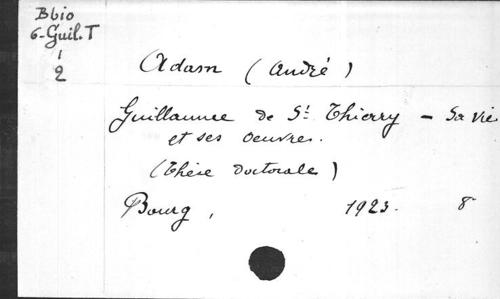 Bbio
6-Guil.T
1
2
Adam (André)
Guillaume de St. Thierry - Sa vie
et ses oeuvres.
(Thèse doctorale)
Bourg, 1923. 8°